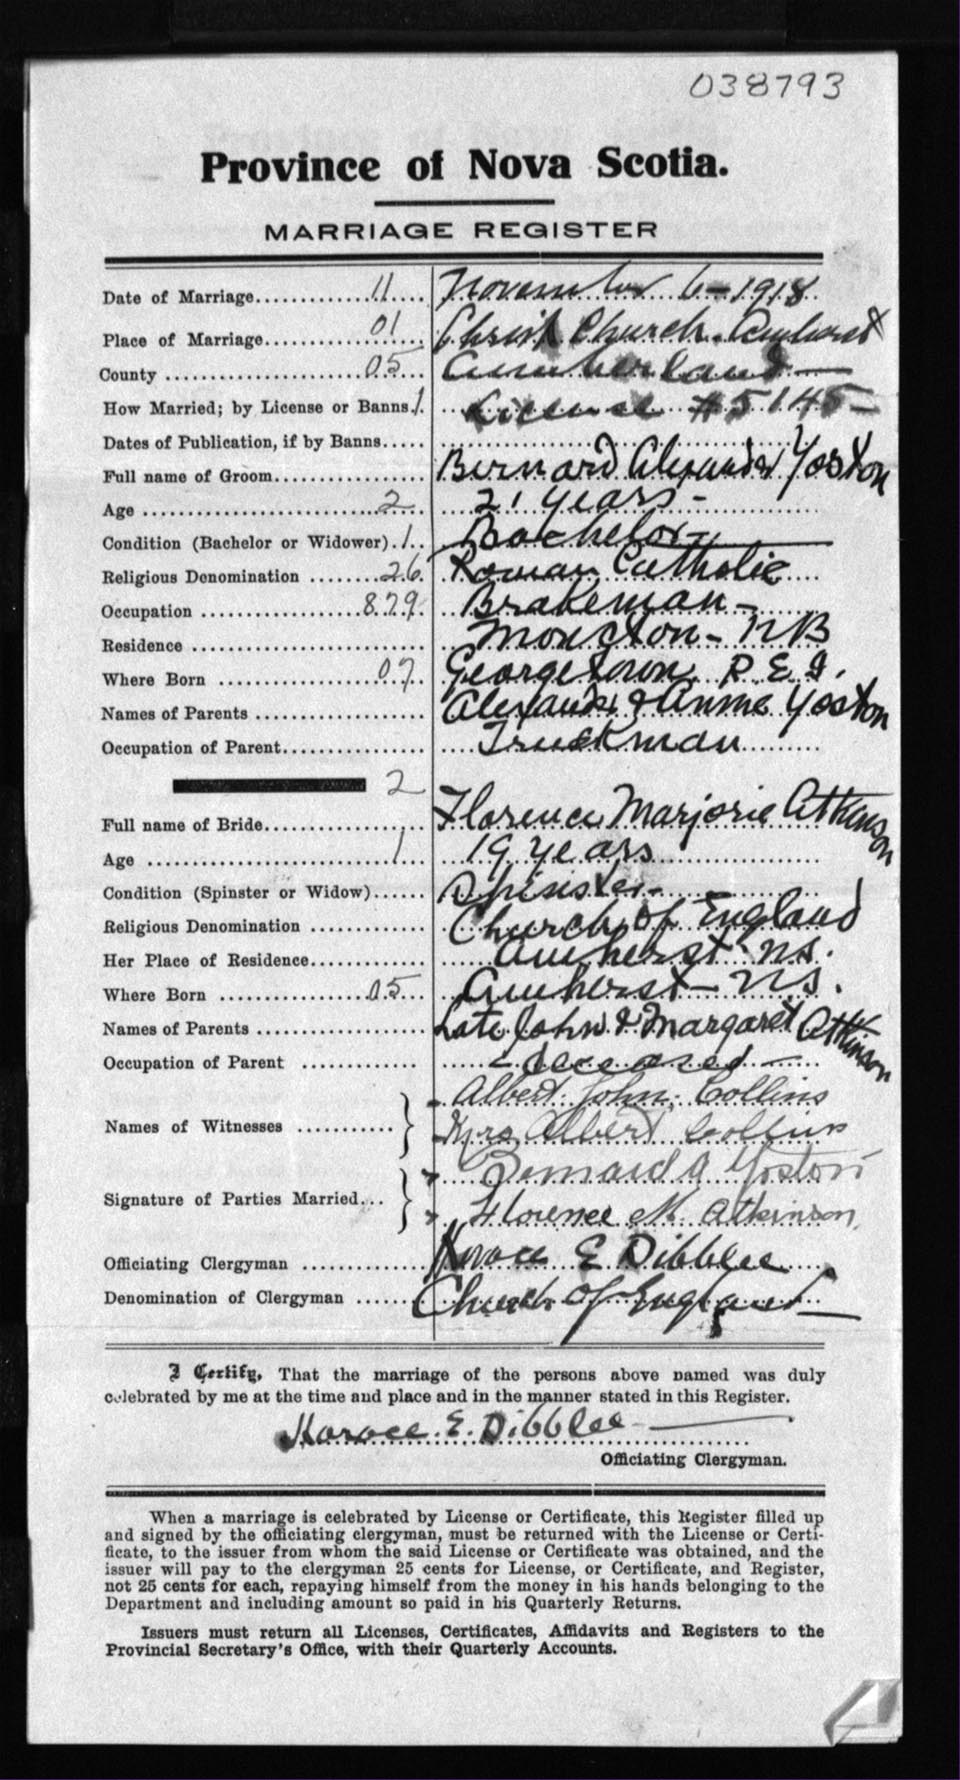 038793
Province of Nova Scotia.
MARRIAGE REGISTER
Date of Marriage.............11..... November 6-1918
Place of Marriage.............01..... Christ Church. Amherst
County .............05..... Cumberland
How Married; by License or Banns.1. License #5145-
Dates of Publication, if by Banns.....
Full name of Groom................ Bernard Alexander Yoston
Age .............2..... 21 years-
Condition (Bachelor or Widower).1.. Bachelor-
Religious Denomination ........26. Roman Catholic
Occupation .............879. Brakeman-
Residence ............. Moncton- NB
Where Born .............07. Georgetown P.E.I.
Names of Parents ............. Alexander & Annie Yoston
Occupation of Parent............. Truckman
2
Full name of Bride............. Florence Marjorie Atkinson
Age .............1... 19 years
Condition (Spinster or Widow)...... Spinster-
Religious Denomination ............. Church of England
Her Place of Residence............. Amherst NS.
Where Born .............05... Amherst- NS.
Names of Parents ............. Late John & Margaret Atkinson
Occupation of Parent ............. - deceased -
Albert John Collins
Names of Witnesses .............
Mrs Albert Collins
Bernard A Yoston
Signature of Parties Married...
Florence M. Atkinson
Officiating Clergyman ............. Horace E Dibblee
Denomination of Clergyman ....... Church of England
I Certify, That the marriage of the persons above named was duly
celebrated by me at the time and place and in the manner stated in this Register.
Horace. E. Dibblee
Officiating Clergyman.
When a marriage is celebrated by License or Certificate, this Register filled up
and signed by the officiating clergyman, must be returned with the License or Certi-
ficate, to the issuer from whom the said License or Certificate was obtained, and the
issuer will pay to the clergyman 25 cents for License, or Certificate, and Register,
not 25 cents for each, repaying himself from the money in his hands belonging to the
Department and including amount so paid in his Quarterly Returns.
Issuers must return all Licenses, Certificates, Affidavits and Registers to the
Provincial Secretary's Office, with their Quarterly Accounts.